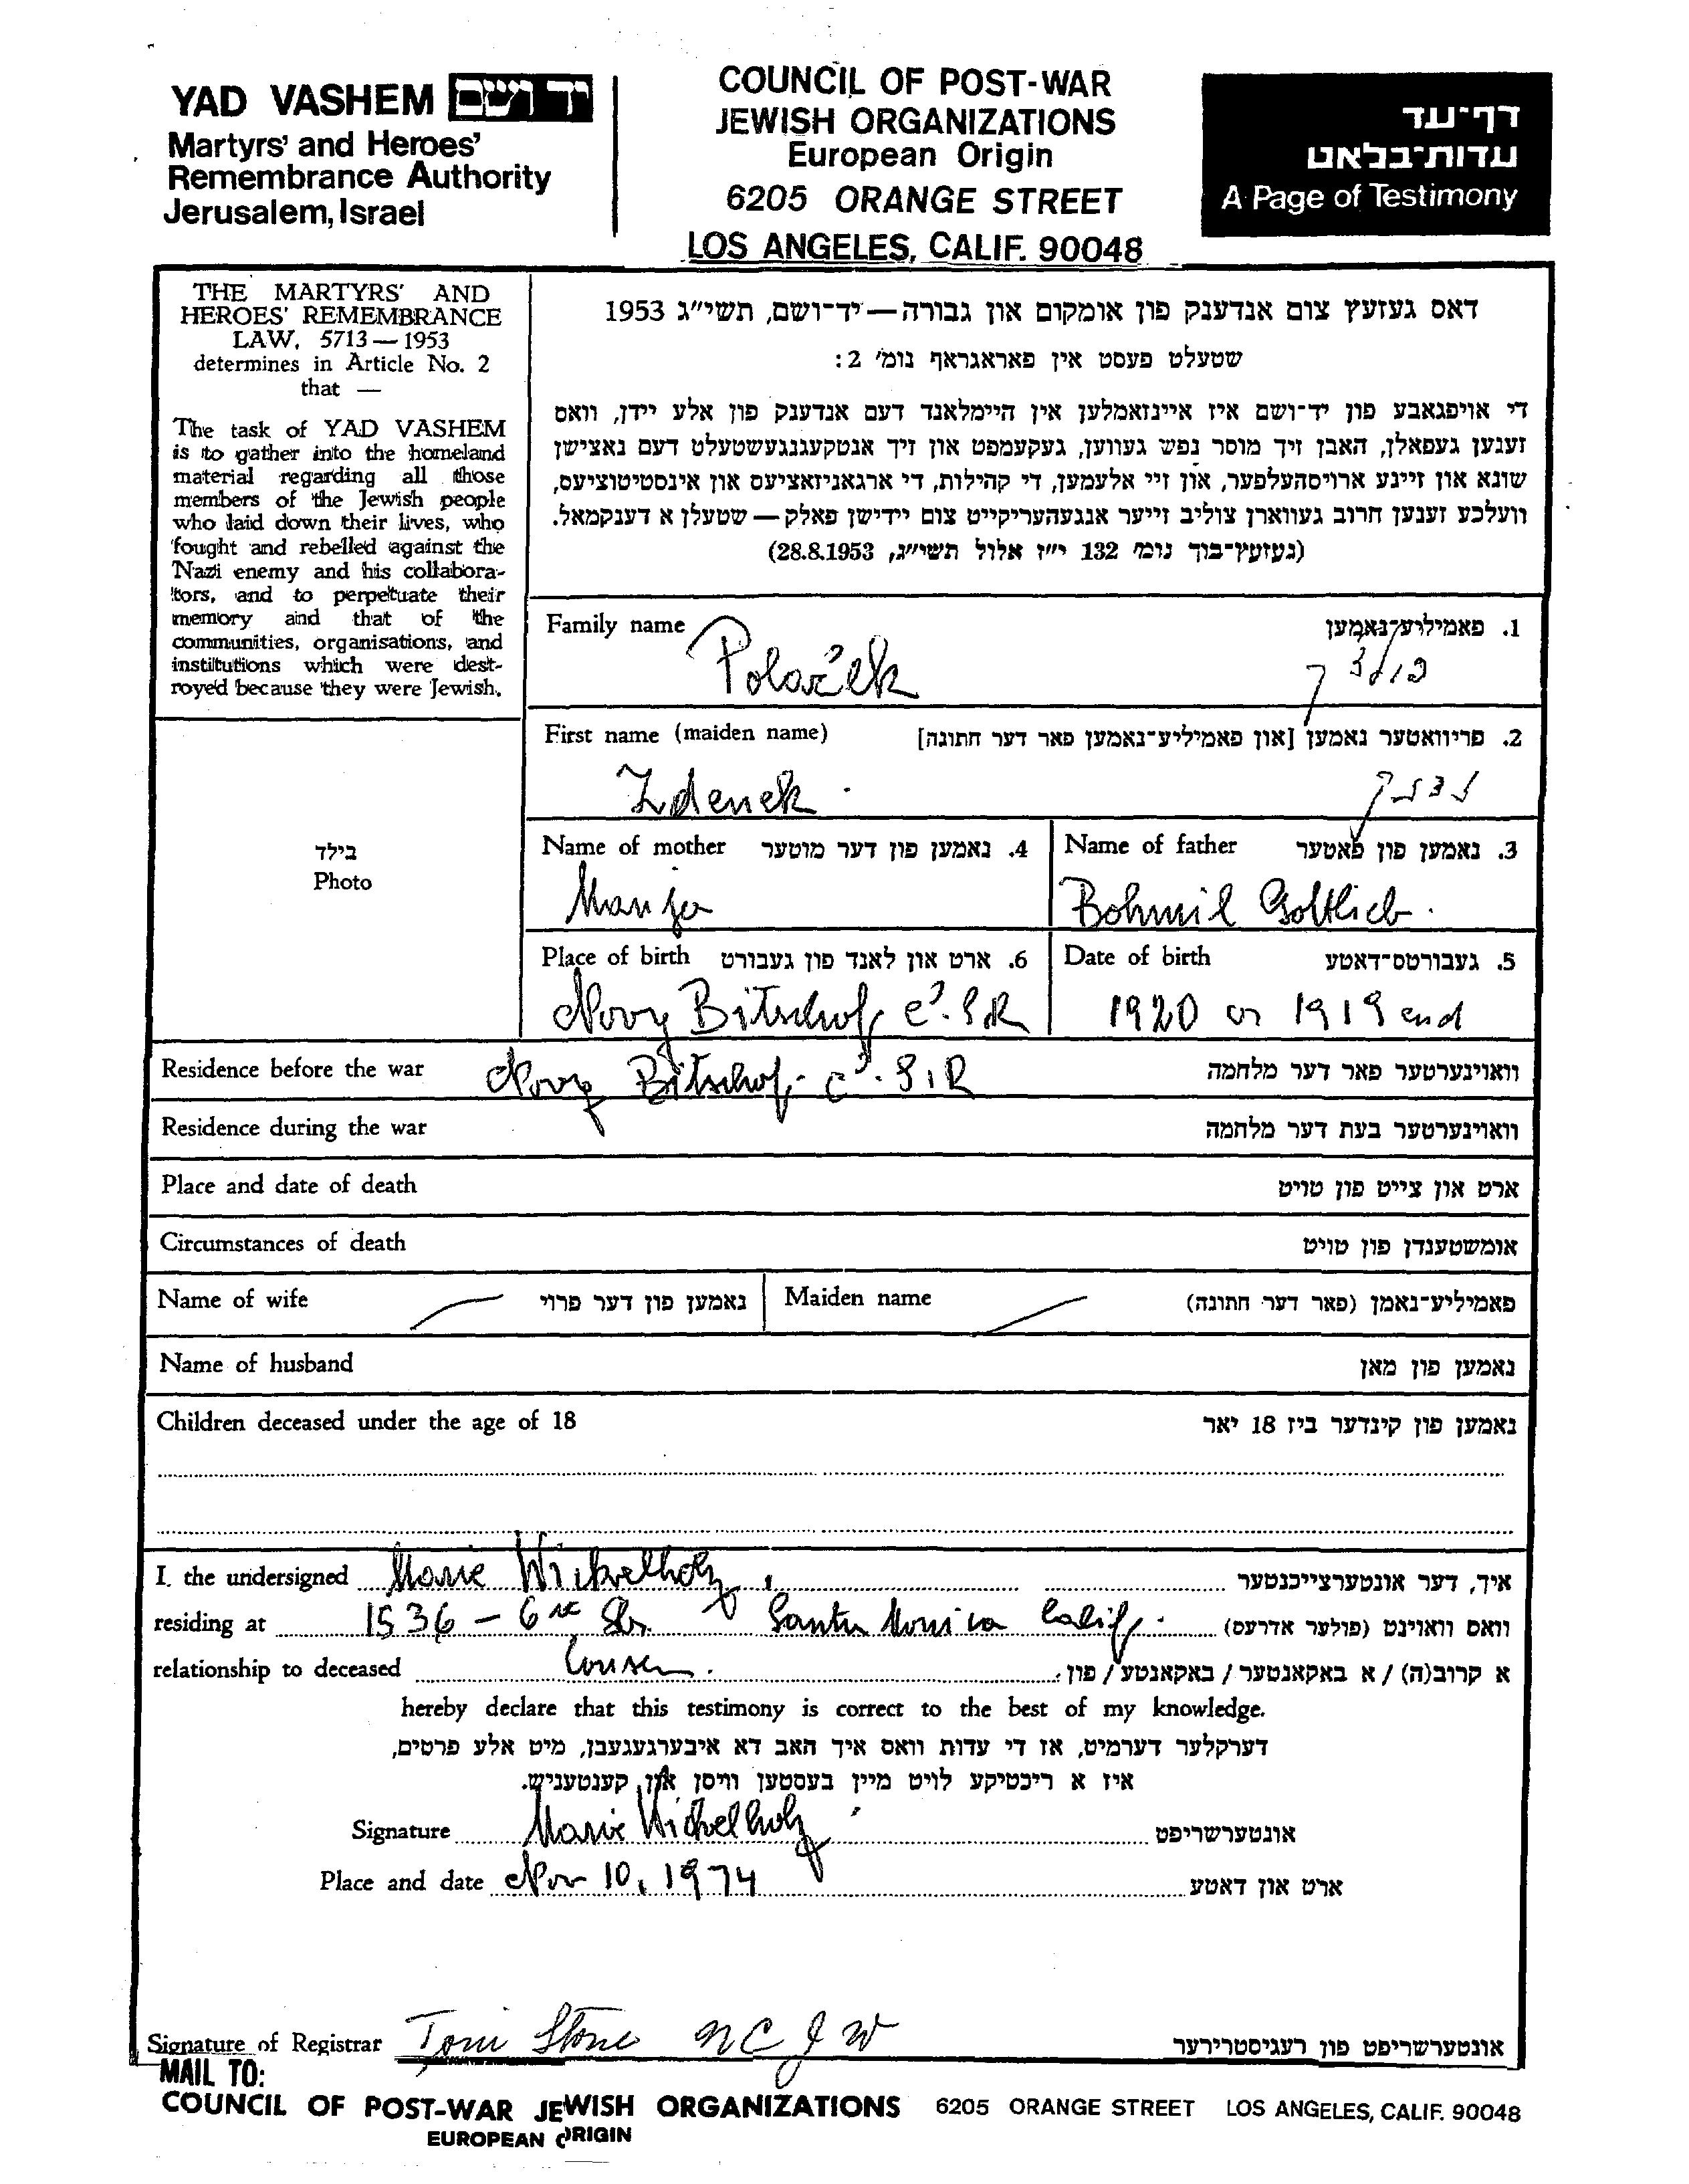 YAD VASHEM יד ושם
Martyrs' and Heroes'
Remembrance Authority
Jerusalem, Israel
COUNCIL OF POST-WAR
JEWISH ORGANIZATIONS
European Origin
6205 ORANGE STREET
LOS ANGELES, CALIF. 90048
דף־עד
עדות־בלאט
A Page of Testimony
THE MARTYRS' AND
HEROES' REMEMBRANCE
LAW, 5713—1953
determines in Article No. 2
that —
The task of YAD VASHEM
is to gather into the homeland
material regarding all those
members of the Jewish people
who laid down their lives, who
fought and rebelled against the
Nazi enemy and his collabora-
tors, and to perpetuate their
memory and that of the
communities, organisations, and
institutions which were dest-
royed because they were Jewish.
דאס געזעץ צום אנדענק פון אומקום און גבורה—יד־ושם, תשי״ג 1953
שטעלט פעסט אין פאראגראף נומ׳ 2:
די אויפגאבע פון יד־ושם איז איינזאמלען אין היימלאנד דעם אנדענק פון אלע יידן, וואס
זענען געפאלן, האבן זיך מוסר נפש געווען, געקעמפט און זיך אנטקעגנגעשטעלט דעם נאצישן
שונא און זיינע ארויסהעלפער, און זיי אלעמען, די קהילות, די ארגאניזאציעס און אינסטיטוציעס,
וועלכע זענען חרוב געווארן צוליב זייער אנגעהעריקייט צום יידישן פאלק—שטעלן א דענקמאל.
(געזעץ־בוך נומ׳ 132 י״ז אלול תשי״ג, 28.8.1953)
Family name 1. פאמיליע־נאמען
Polaček
First name (maiden name) 2. פריוואטער נאמען [און פאמיליע־נאמען פאר דער חתונה]
Zdenek
בילד
Photo
Name of mother 4. נאמען פון דער מוטער
Manja
Name of father 3. נאמען פון פאטער
Bohmil Gottlieb.
Place of birth 6. ארט און לאנד פון געבורט
Novy Bitschof, Č.S.R
Date of birth 5. געבורטס־דאטע
1920 or 1919 end
Residence before the war Novy Bitschof, Č.S.R וואוינערטער פאר דער מלחמה
Residence during the war וואוינערטער בעת דער מלחמה
Place and date of death ארט און צייט פון טויט
Circumstances of death אומשטענדן פון טויט
Name of wife נאמען פון דער פרוי Maiden name פאמיליע־נאמן (פאר דער חתונה)
Name of husband נאמען פון מאן
Children deceased under the age of 18 נאמען פון קינדער ביז 18 יאר
I. the undersigned Marie Wickelholz, איך, דער אונטערצייכנטער
residing at 1536 - 6 Str. Santa Monica Calif. וואס וואוינט (פולער אדרעס)
relationship to deceased Cousin. א קרוב(ה) / א באקאנטער / באקאנטע / פון
hereby declare that this testimony is correct to the best of my knowledge.
דערקלער דערמיט, אז די עדות וואס איך האב דא איבערגעגעבן, מיט אלע פרטים,
איז א ריכטיקע לויט מיין בעסטען וויסן און קענטעניש.
Signature Marie Wickelholz אונטערשריפט
Place and date Nov 10, 1974 ארט און דאטע
Signature of Registrar Toni Stone NCJW אונטערשריפט פון רעגיסטרירער
MAIL TO:
COUNCIL OF POST-WAR JEWISH ORGANIZATIONS 6205 ORANGE STREET LOS ANGELES, CALIF. 90048
EUROPEAN ORIGIN